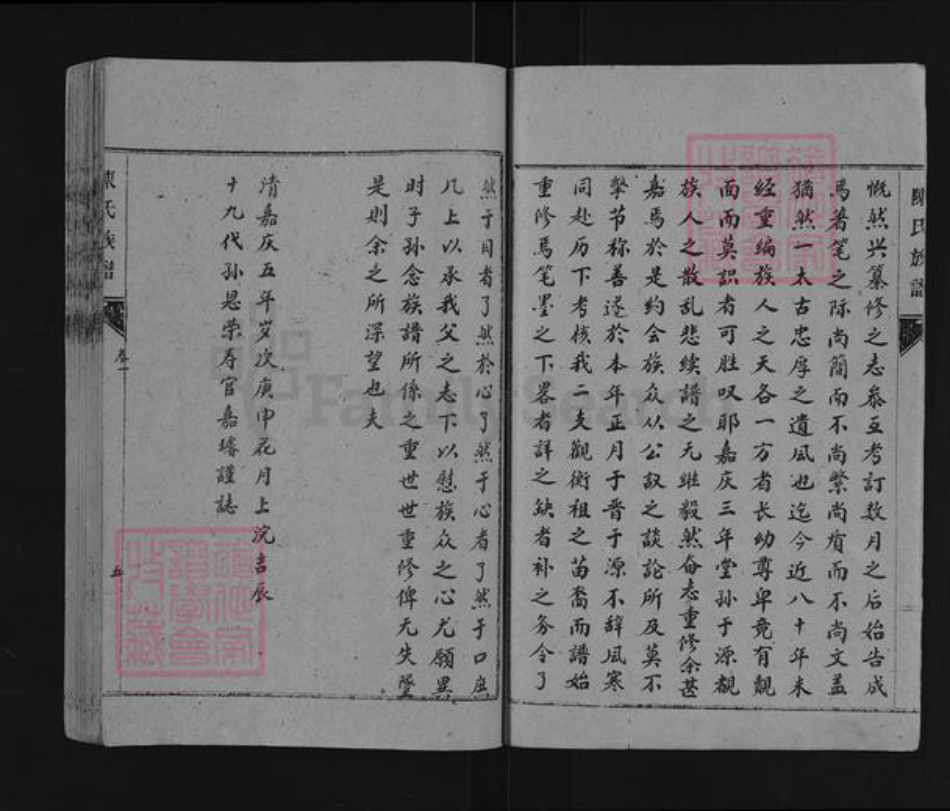 陳氏族譜
慨然兴纂修之志叅互考訂数月之后始告成
焉著笔之际尚簡而不尚繁尚质而不尚文盖
猶然一太古忠厚之遺风也迄今近八十年未
经重编族人之天各一方者长幼尊卑竟有覿
面而莫識者可胜叹耶嘉庆三年堂孙于源覩
族人之散乱悲续譜之无继毅然奋志重修余甚
嘉焉於是约会族众从公議之談論所及莫不
擊节称善遂於本年正月于晋于源不辞风寒
同赴历下考核我二支觀衡祖之苗裔而譜始
重修焉笔墨之下畧者詳之缺者补之务令了
然于目者了然於心了然于心者了然于口庶
几上以承我父之志下以慰族众之心尤願異
时子孙念族譜所係之重世世重修俾无失墜
是则余之所深望也夫
清嘉庆五年岁次庚申花月上浣吉辰
十九代孙恩荣寿官嘉璿謹誌
陳氏族譜
卷一
五